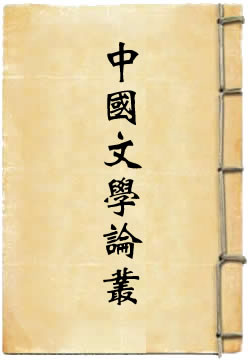 中國文學論叢